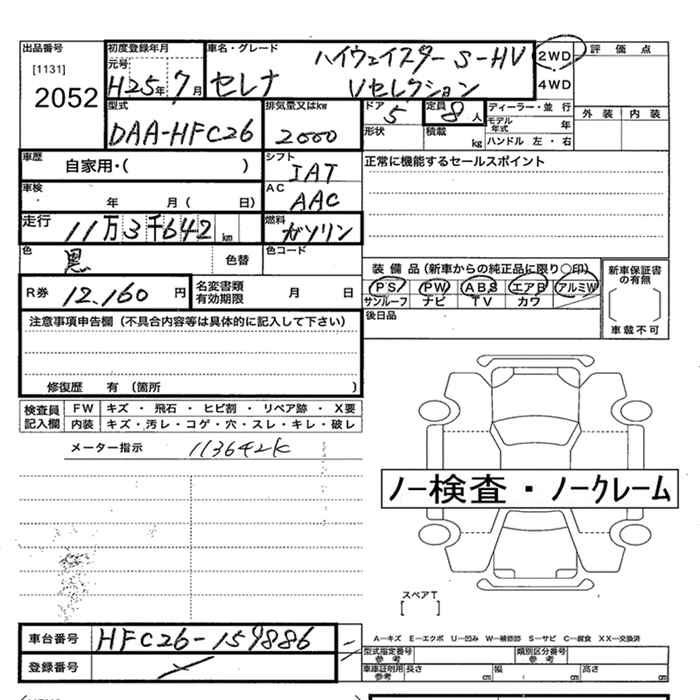 出品番号
[1131]
2052
初度登録年月
元号
H25年7月
車名・グレード
ハイウェイスター S-HV
セレナ Vセレクション
2WD
4WD
評価点
外装 内装
型式
DAA-HFC26
排気量又はkw
2000
ドア
5
形状
定員
8人
積載
kg
ディーラー・並行
モデル年式 年
ハンドル 左・右
車歴
自家用・( )
シフト
IAT
正常に機能するセールスポイント
車検
年 月( 日)
AC
AAC
走行
11万3千642km
燃料
ガソリン
色
黒
色替
色コード
装備品(新車からの純正品に限り○印)
PS PW ABS エアB アルミW
サンルーフ ナビ TV カワ
新車保証書の有無
車載不可
R券 12,160円
名変書類有効期限 月 日
後日品
注意事項申告欄(不具合内容等は具体的に記入して下さい)
修復歴 有(箇所 )
検査員記入欄
FW キズ・飛石・ヒビ割・リペア跡・X要
内装 キズ・汚レ・コゲ・穴・スレ・キレ・破レ
メーター指示 113642K
ノー検査・ノークレーム
スペアT
[ ]
車台番号 HFC26-159886
登録番号
A−キズ E−エクボ U−凹み W−補修跡 S−サビ C−腐食 XX−交換済
型式指定番号
参考
類別区分番号
参考
車庫証明用
参考
長さ cm 幅 cm 高さ cm